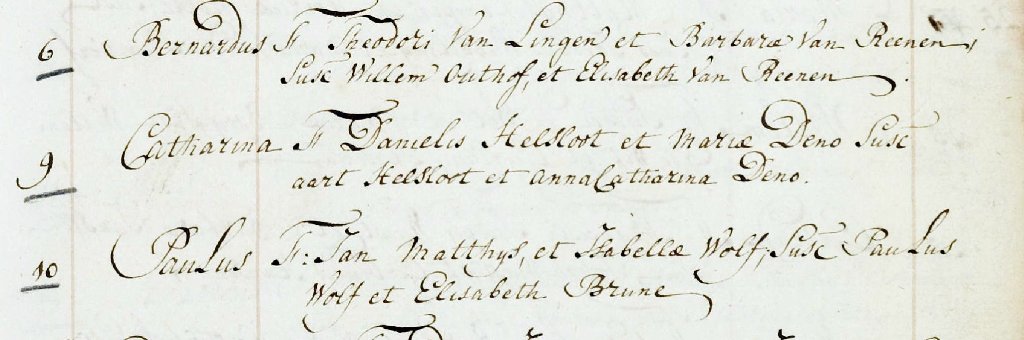 6 Bernardus F Theodori Van Lingen et Barbaræ Van Reenen;
Susc Willem Outhof, et Elisabeth Van Reenen
9 Catharina F Danielis Helsloot et Mariæ Deno Susc
aart Helsloot et Anna Catharina Deno.
10 Paulus F: Jan Matthys, et Isabellæ Wolf; Susc Paulus
Wolf et Elisabeth Brune